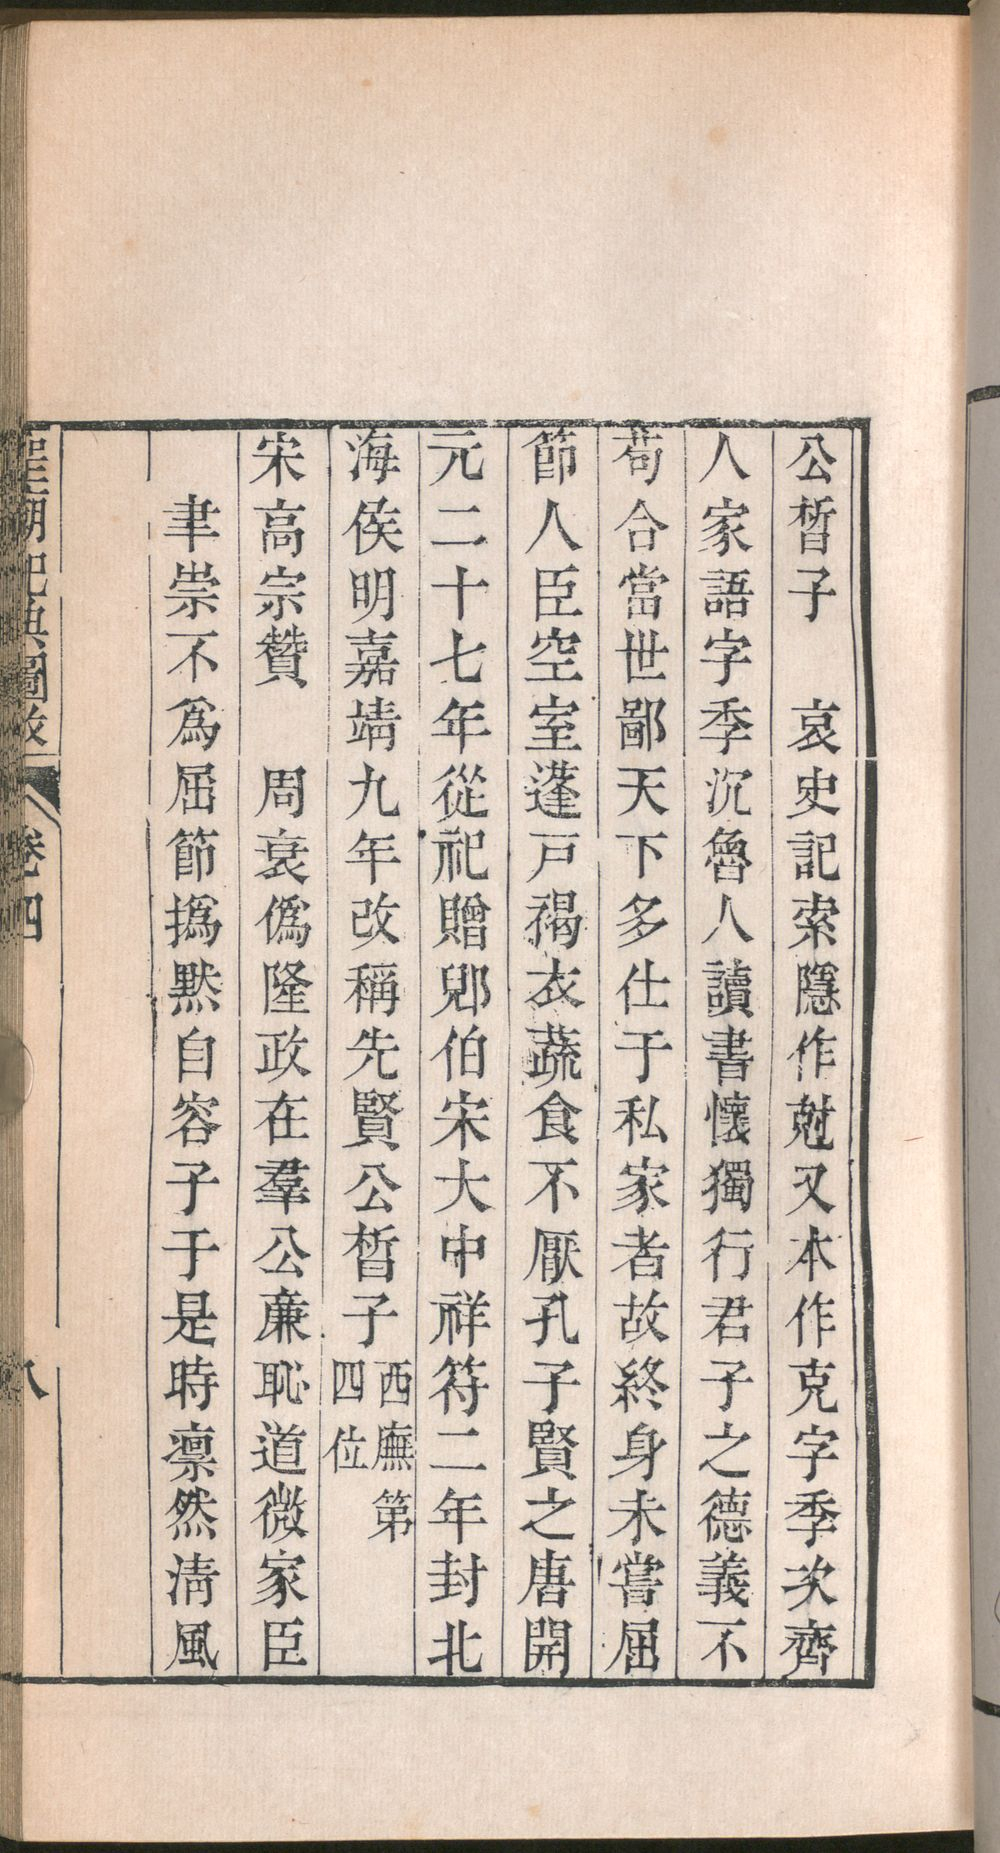 公晳子　哀史記索隱作尅又本作克字季次齊
人家語字季沉魯人讀書懷獨行君子之德義不
苟合當世鄙天下多仕于私家者故終身未嘗屈
節人臣空室蓬戸褐衣蔬食不厭孔子賢之唐開
元二十七年從祀贈郳伯宋大中祥符二年封北
海侯明嘉靖九年改稱先賢公晳子西廡第四位
宋高宗贊　周衰僞隆政在羣公廉恥道微家臣
聿崇不爲屈節撝默自容子于是時凛然淸風
聖廟祀典圖攷　卷四　八